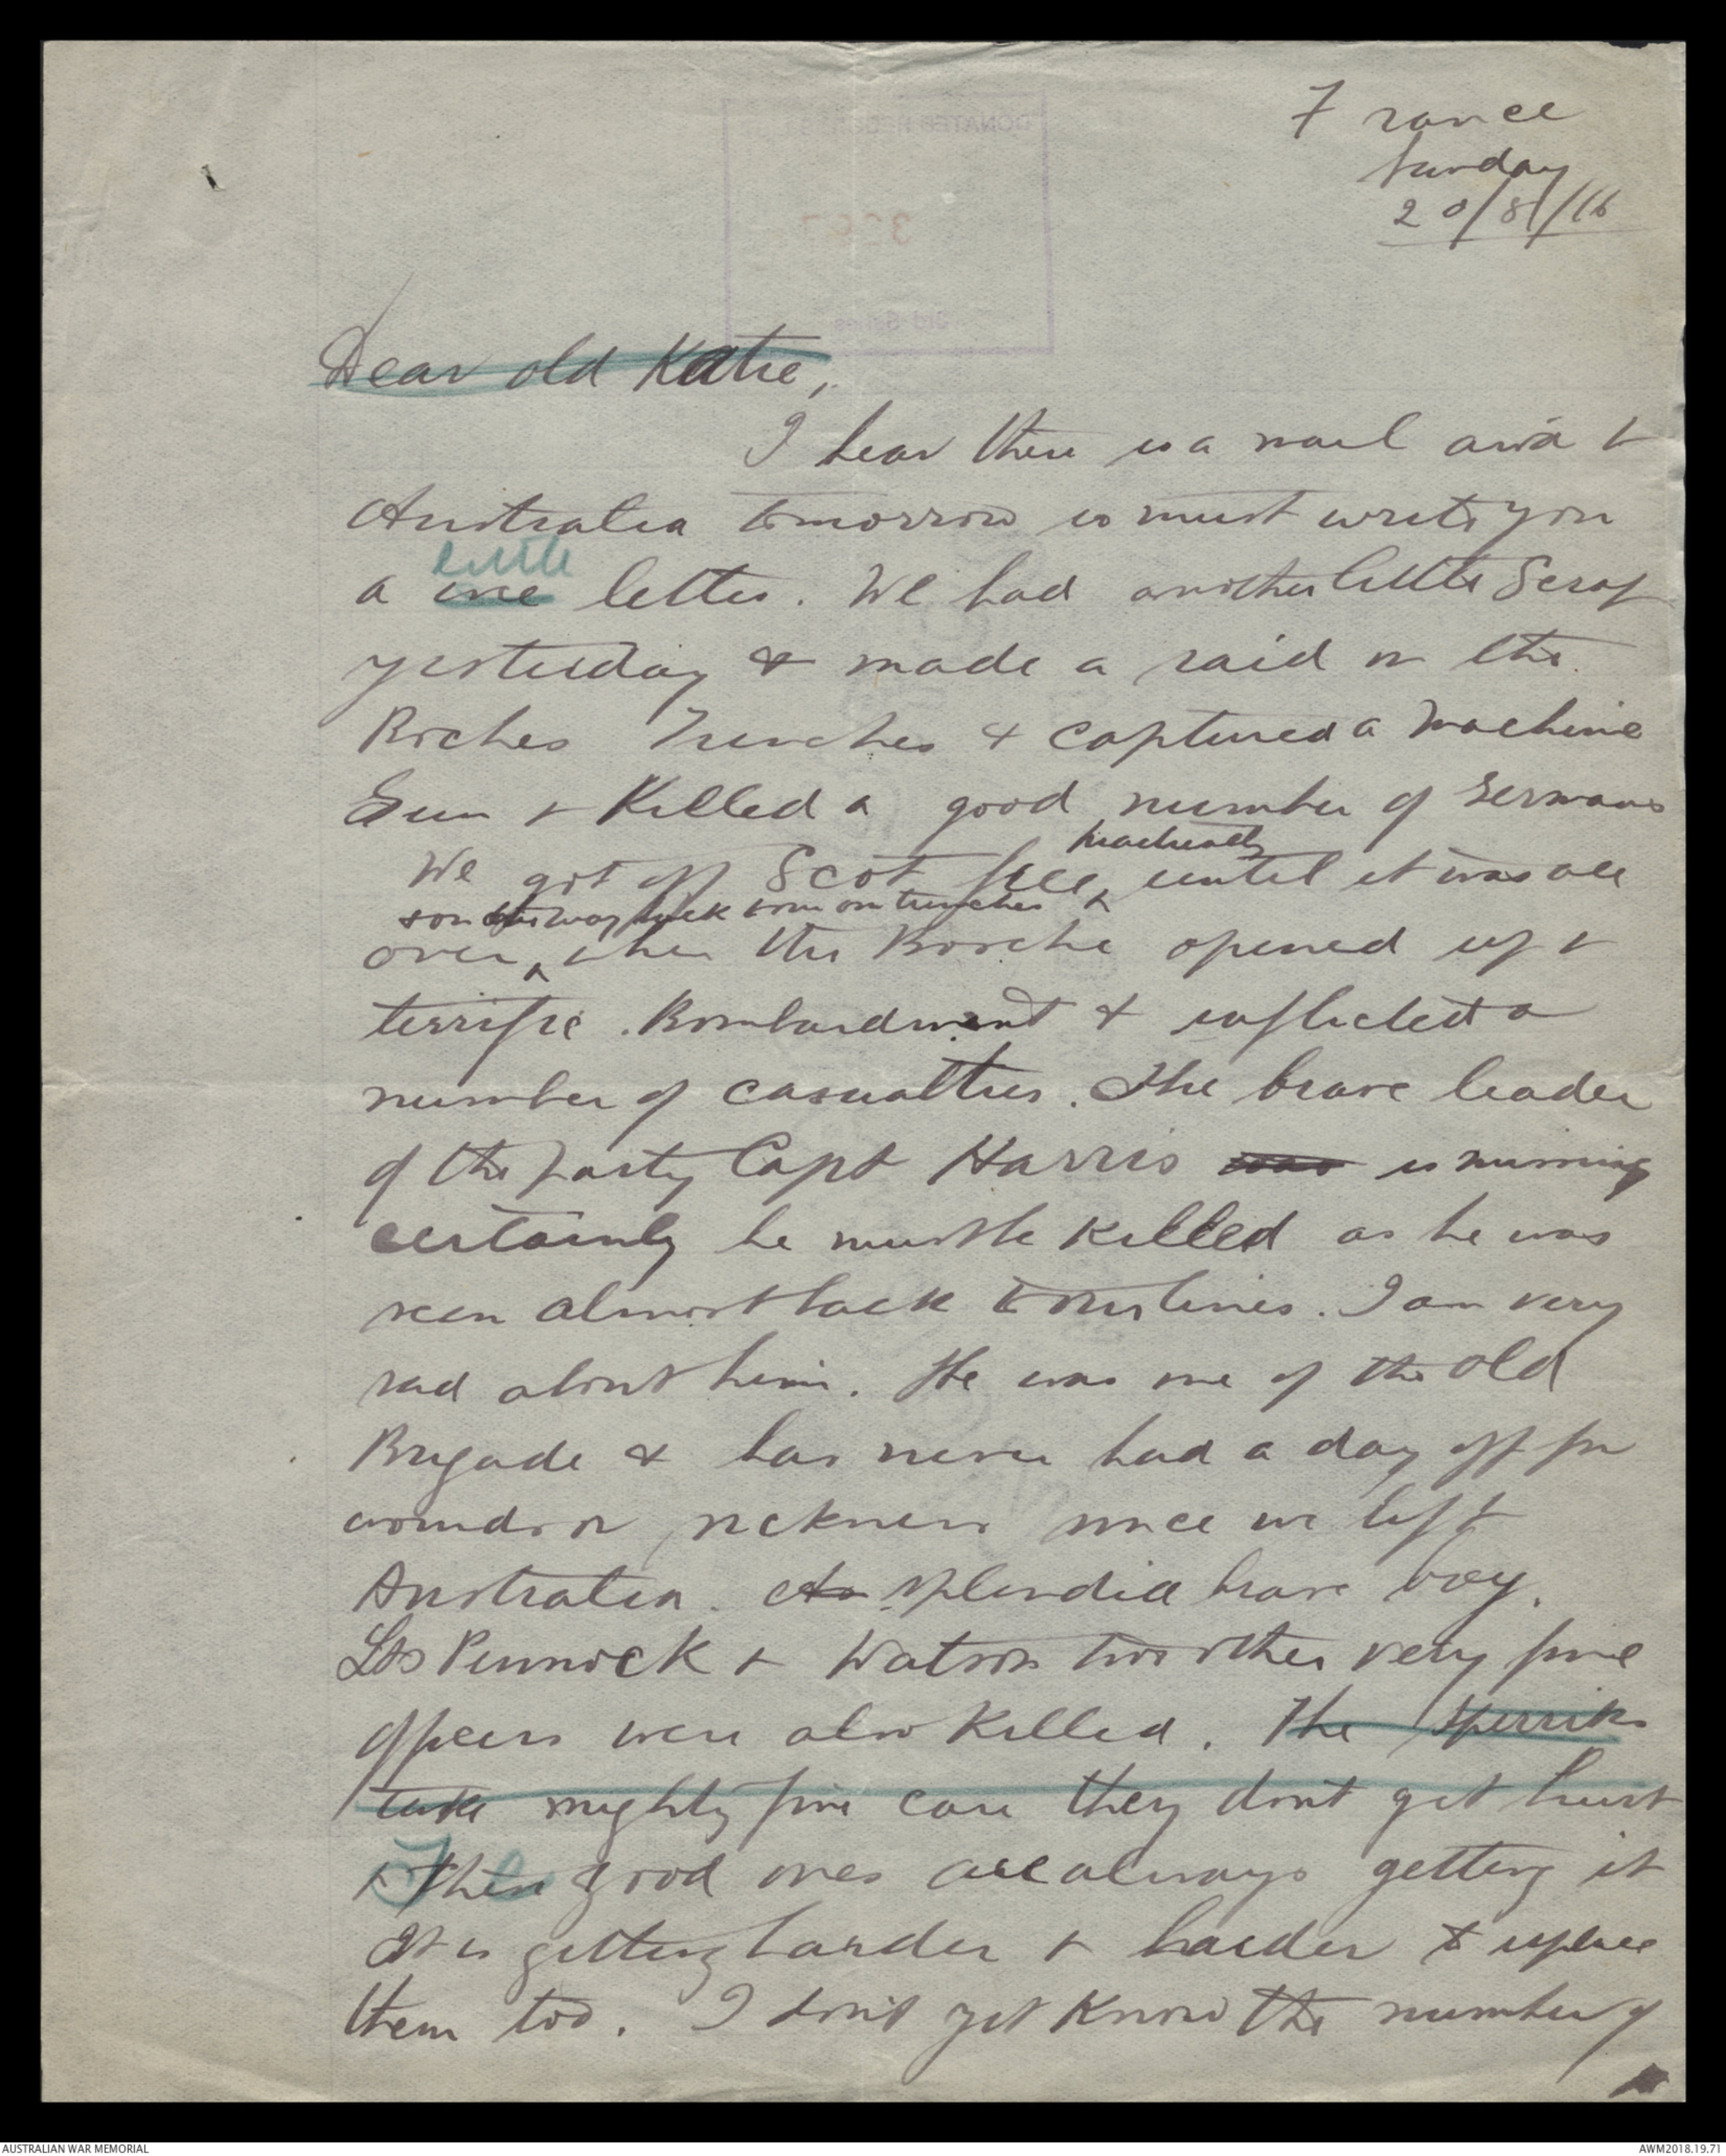 France
Sunday
20/8/16
DONATED RECORDS
3397
3rd Series
Dear old Katie,
I hear there is a mail awa to
Australia tomorrow so must write you
little
a one letter. We had another little Scrap
yesterday & made a raid on the
Boches Trenches & captured a Machine
Gun & Killed a good number of Germans
practically
We got off Scot free until it was all
& on the way back to our own trenches
over, when the Boche opened up a
terrific Bombardment & inflicted a
number of casualties. The brave leader
of the party Capt Harris was is missing
certainly he must be Killed as he was
seen almost back to our lines. I am very
sad about him. He was one of the old
Brigade & has never had a day off for
wounds or sickness since we left
Australia. A splendid brave boy.
Lts Pinnock & Watson two other very fine
officers were also Killed. The
take mighty fine care they dont get hurt
& these The good ones are always getting it
It is getting harder & harder to replace
them too. I don't yet Know the number of
AUSTRALIAN WAR MEMORIAL
AWM2018.19.71